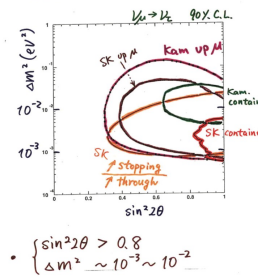 νμ → ντ 90% C.L.
Δm² (eV²)
1
10⁻¹
10⁻²
10⁻³
SK up μ
Kam up μ
Kam.
contain
SK contain
SK
↗ stopping
↗ through
0 0.2 0.4 0.6 0.8 1
sin²2θ
• { sin²2θ > 0.8
Δm² ~10⁻³~10⁻²